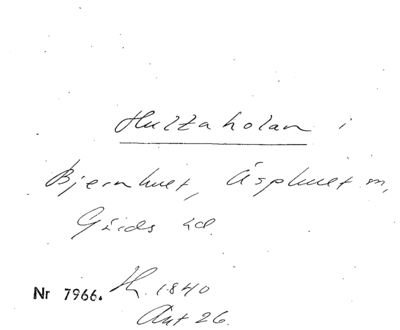 Hultaholan i
Bjernhult, Äsphult sn,
Gärds hd.
Nr 7966. Th. 1840
Ant 26.